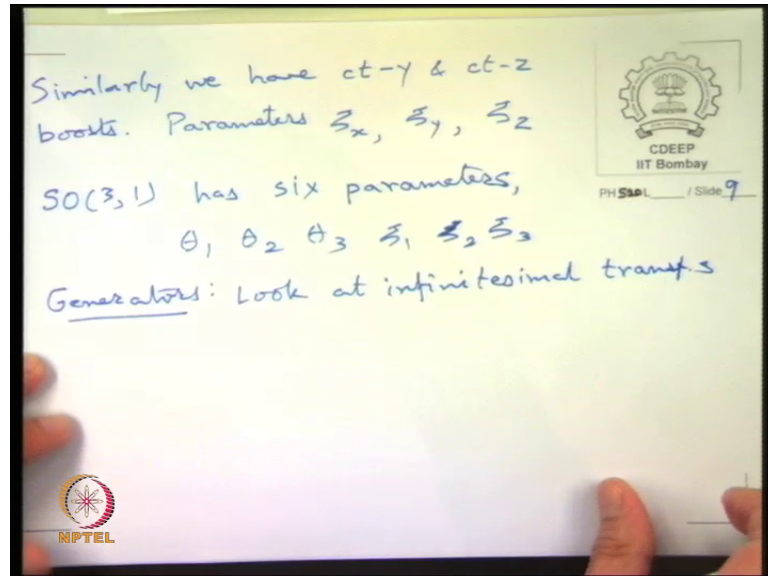 Similarly we have ct-y & ct-z
boosts. Parameters ξx, ξy, ξz
SO(3,1) has six parameters,
θ1 θ2 θ3 ξ1 ξ2 ξ3
Generators: Look at infinitesimal transf.s
CDEEP
IIT Bombay
PH 520 L / Slide 9
NPTEL